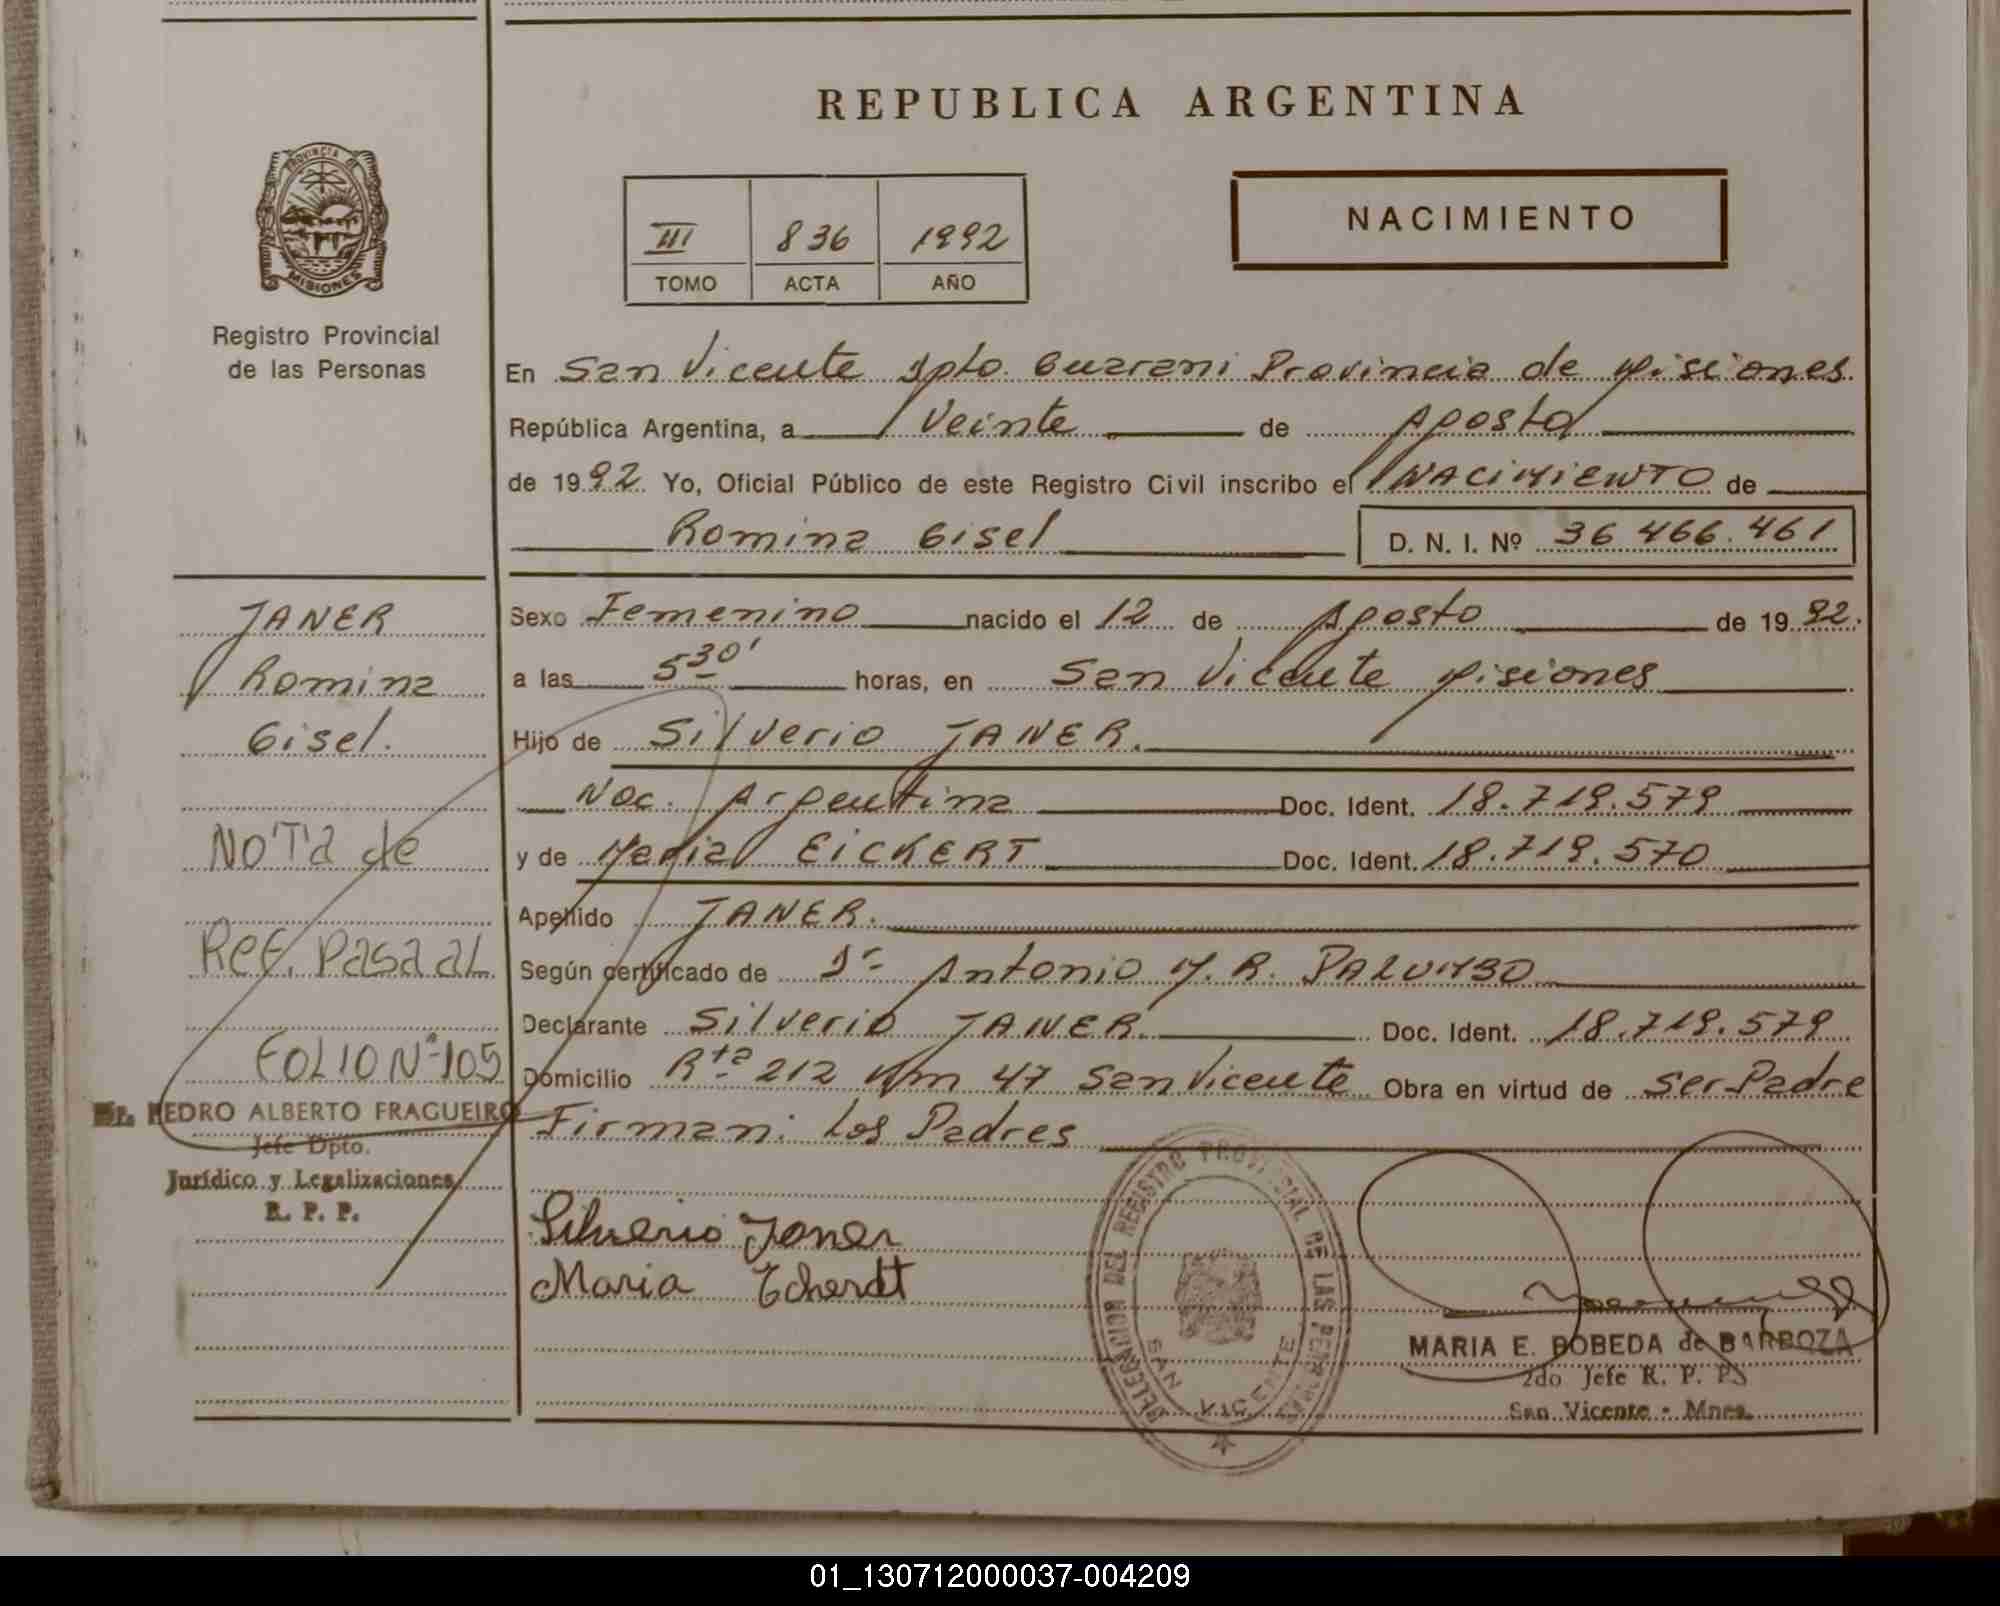 REPUBLICA ARGENTINA
PROVINCIA DE
MISIONES
Registro Provincial
de las Personas
III 836 1992
TOMO ACTA AÑO
NACIMIENTO
En San Vicente Dpto. Guarani Provincia de Misiones
República Argentina, a Veinte de Agosto
de 1992. Yo, Oficial Público de este Registro Civil inscribo el NACIMIENTO de
Romina Gisel D. N. I. Nº 36 466.461
JANER
Romina
Gisel.
Sexo Femenino nacido el 12 de Agosto de 1992.
a las 5 30' horas, en San Vicente Misiones
Hijo de Silverio JANER.
Nac. Argentina Doc. Ident. 18.719.579
y de Maria EICKERT Doc. Ident. 18.719.570
Apellido JANER.
Según certificado de Dr Antonio M. R. PALUMBO
Declarante Silverio JANER. Doc. Ident. 18.719.579
Domicilio Rta 212 Km 47 San Vicente Obra en virtud de ser Padre
Firman: Los Padres
NOTA de
REF. PASA AL
FOLIO Nº 105
PEDRO ALBERTO FRAGUEIRO
Jefe Dpto.
Jurídico y Legalizaciones
R. P. P.
Silverio Janer
Maria Echerdt
DELEGACION DEL REGISTRO PROVINCIAL DE LAS PERSONAS
SAN VICENTE
MARIA E. BOBEDA de BARBOZA
2do Jefe R. P. P.
San Vicente - Mnes.
01_130712000037-004209